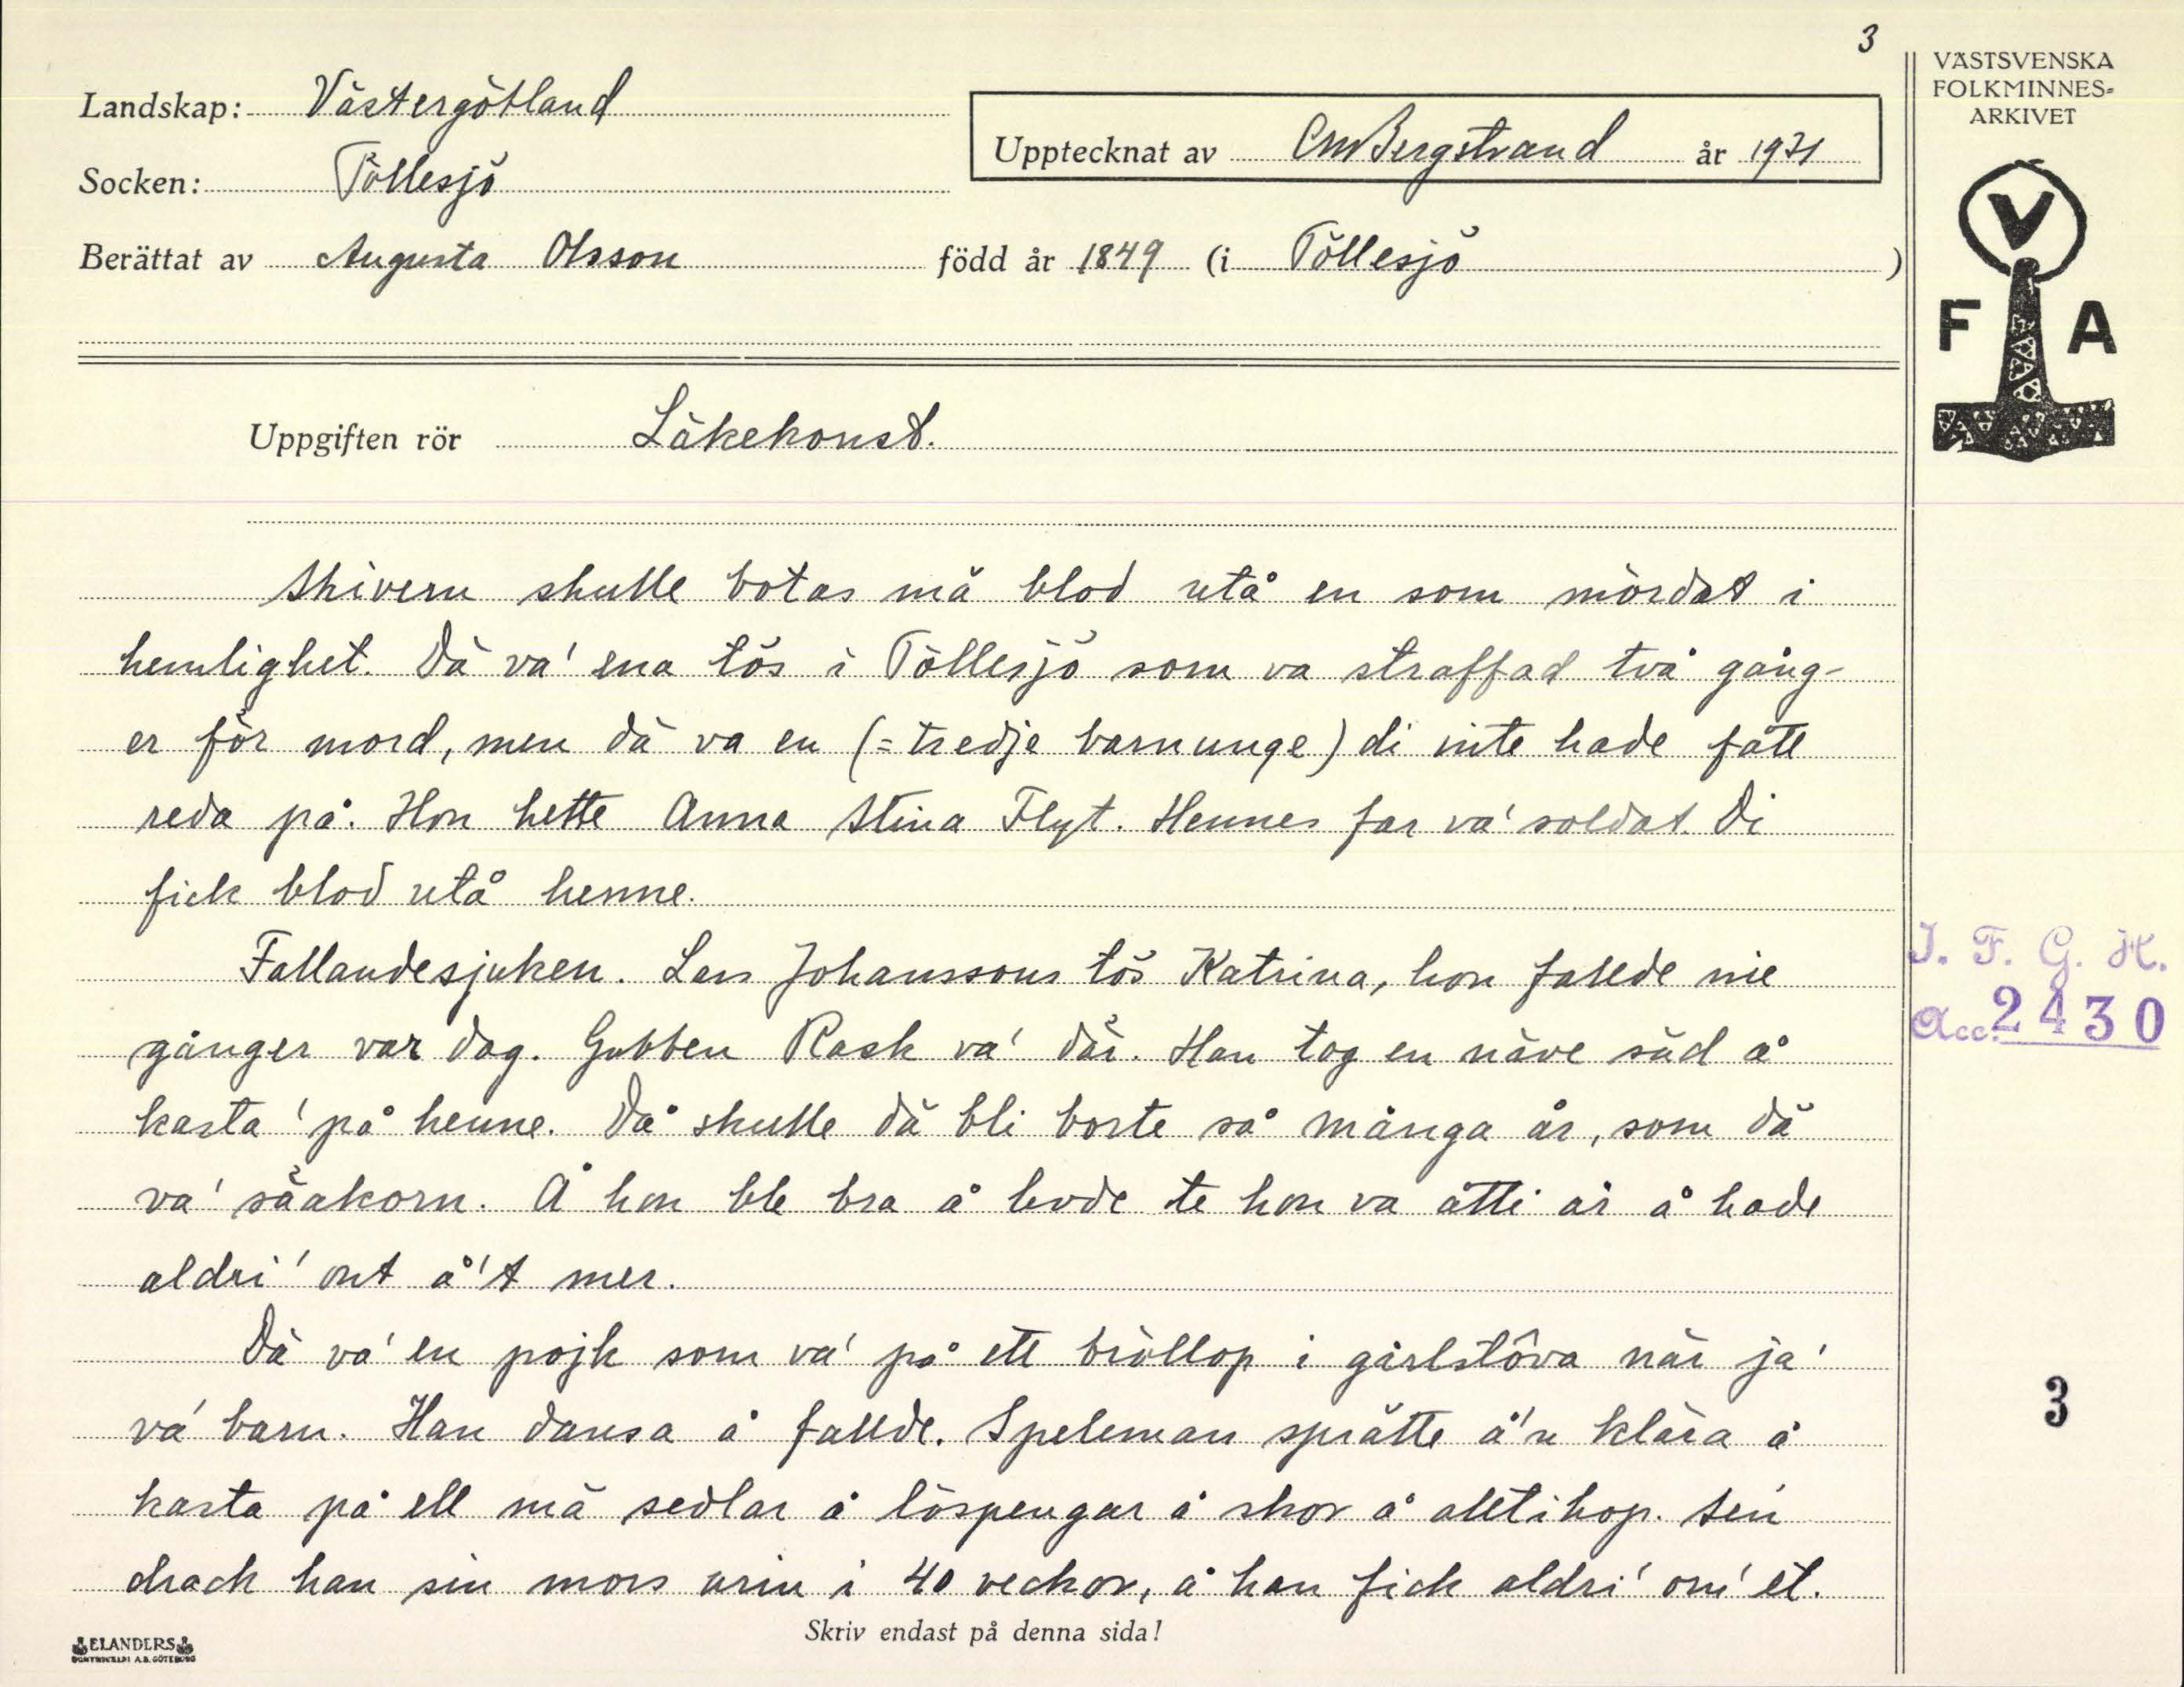 3
VÄSTSVENSKA
FOLKMINNES-
ARKIVET
Landskap: Västergötland
Upptecknat av CM Bergstrand år 1931
Socken: Töllesjö
Berättat av Augusta Olsson född år 1849 (i Töllesjö )
V
F A
Uppgiften rör Läkekonst.
Skivern skulle botas mä blod utå en som mördat i
hemlighet. Dä va' ena tös i Töllesjö som va straffad två gång-
er för mord, men dä va en (= tredje barnunge) di inte hade fått
reda på. Hon hette Anna Stina Flyt. Hennes far va' soldat. Di
fick blod utå henne.
Fallandesjuken. Lars Johanssons tös Katrina, hon fallde nie
gånger var dag. Gubben Rask va' där. Han tog en näve säd å
kasta' på henne. Då skulle dä bli borte så många år, som dä
va' säakorn. Å hon ble bra å levde te hon va åtti år å hade
aldri' ont å't mer.
Dä va' en pojk som va' på ett bröllop i gårlstôva när ja'
va' barn. Han dansa å fallde. Speleman sprätte å'n klära å
kasta på ell mä sedlar å löspengar å skor å alltihop. Sen
drack han sin mors urin i 40 veckor, å han fick aldri' om' et.
J. F. G. H.
Acc. 2430
3
Skriv endast på denna sida!
ELANDERS